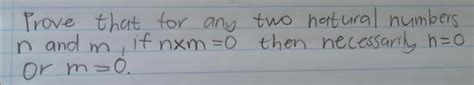 Prove that for any two natural numbers
n and m, if n×m=0 then necessarily n=0
or m=0.